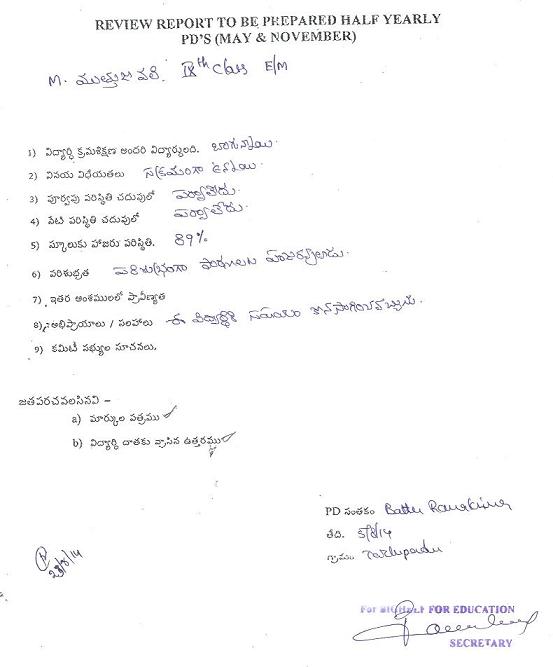 REVIEW REPORT TO BE PREPARED HALF YEARLY
PD'S (MAY & NOVEMBER)
M. ముత్యావళి IXth Class E/M
1) విద్యార్థి క్రమశిక్షణ అందరి విద్యార్థులది. బాగున్నాయి.
2) వినయ విధేయతలు సక్రమంగా ఉన్నాయి.
3) పూర్వపు పరిస్థితి చదువులో పర్వాలేదు.
4) నేటి పరిస్థితి చదువులో పర్వాలేదు.
5) స్కూలుకు హాజరు పరిస్థితి. 89%
6) పరిశుభ్రత పరిశుభ్రంగా హాజరవుతాడు.
7) ఇతర అంశములలో ప్రావీణ్యత
8) అభిప్రాయాలు / సలహాలు ఈ విద్యార్థికి సహాయం కొనసాగించవచ్చును.
9) కమిటీ సభ్యుల సూచనలు.
జతపరచవలసినవి -
a) మార్కుల పత్రము ✓
b) విద్యార్థి దాతకు వ్రాసిన ఉత్తరము ✓
PD సంతకం Battu Ramakrishna
తేది. 5/8/14
గ్రామం
28/8/14
For BIGHELP FOR EDUCATION
SECRETARY